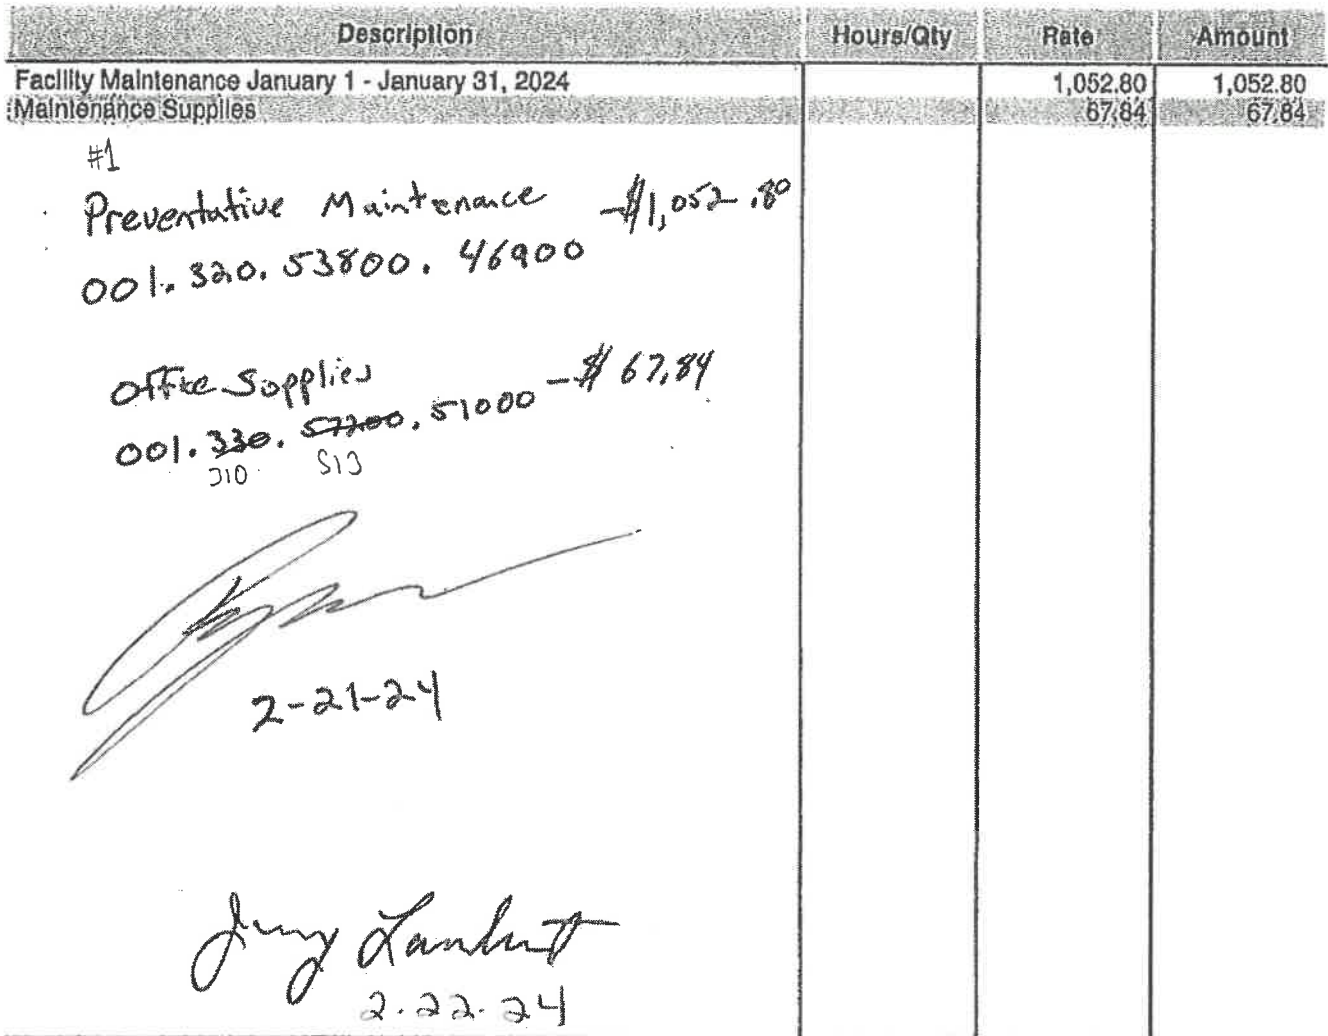 Description Hours/Qty Rate Amount
Facility Maintenance January 1 - January 31, 2024 1,052.80 1,052.80
Maintenance Supplies 67.84 67.84
#1
Preventative Maintenance -$1,052.80
001.320.53800.46900
Office Supplies
001.330.57200.51000 -$67.84
310 513
2-21-24
Jerry Lambert
2.22.24